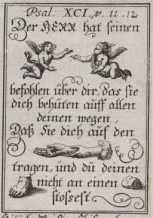 Psal: XCI. v. 11. 12
Der HERR hat seinen
befohlen über dir, das sie
dich behüten auff allen
deinen wegen
Daß Sie dich auf den
tragen, und dü deinen
nicht an einen
stossest.